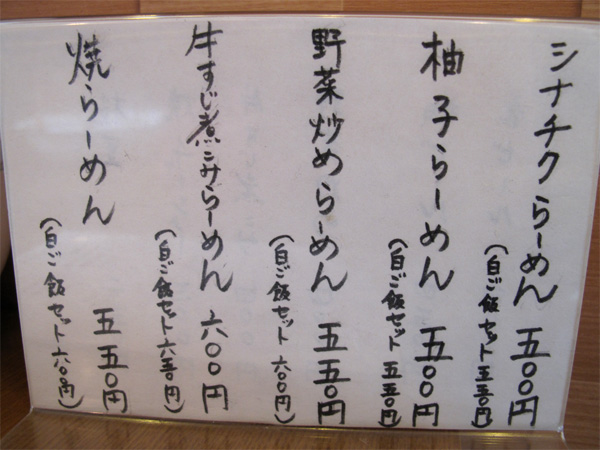 シナチクらーめん 五00円
(白ご飯セット 五五0円)
柚子らーめん 五00円
(白ご飯セット 五五0円)
野菜炒めらーめん 五五0円
(白ご飯セット 六00円)
牛すじ煮こみらーめん 六00円
(白ご飯セット 六五0円)
焼らーめん 五五0円
(白ご飯セット 六00円)